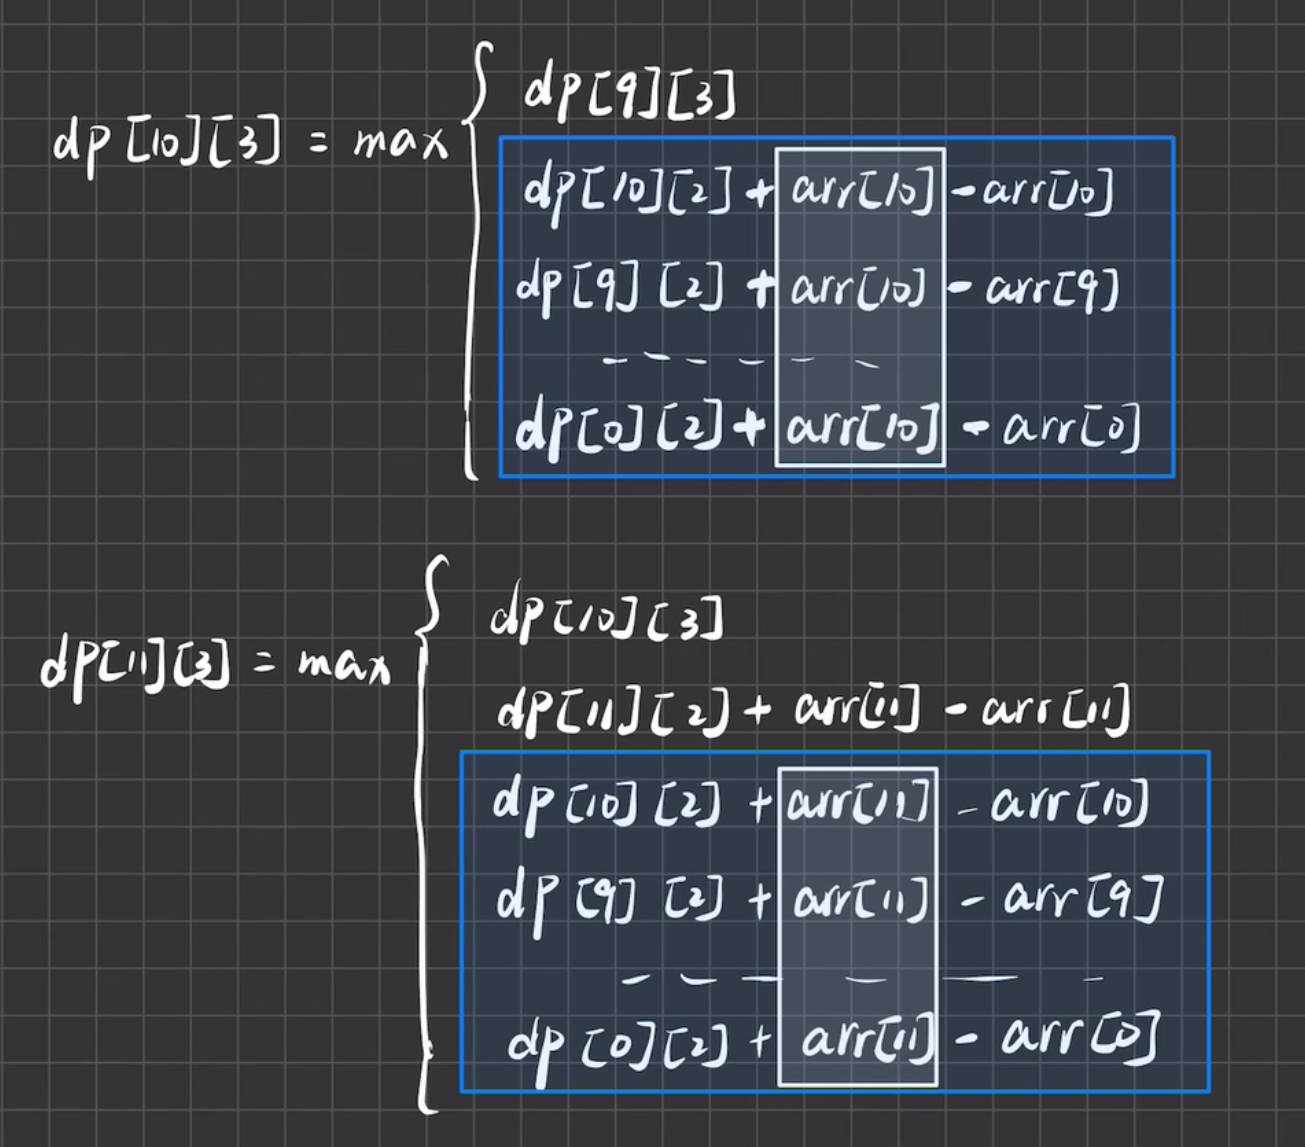 dp[9][3]
dp[10][3] = max
dp[10][2] + arr[10] - arr[10]
dp[9][2] + arr[10] - arr[9]
dp[0][2] + arr[10] - arr[0]
dp[10][3]
dp[11][3] = max
dp[11][2] + arr[11] - arr[11]
dp[10][2] + arr[11] - arr[10]
dp[9][2] + arr[11] - arr[9]
dp[0][2] + arr[11] - arr[0]